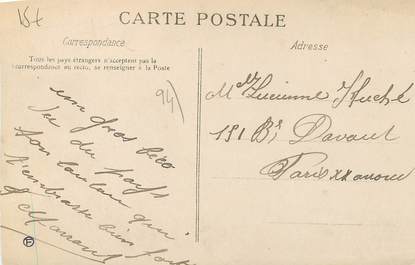 15t
CARTE POSTALE
Correspondance
Tous les pays étrangers n'acceptent pas la
correspondance au recto, se renseigner à la Poste
Adresse
94)
un gros bécot
du pays
ton loulou qui
t'embrasse bien fort
Melle Lucienne Huché
151 Bd Davout
Paris XX
F